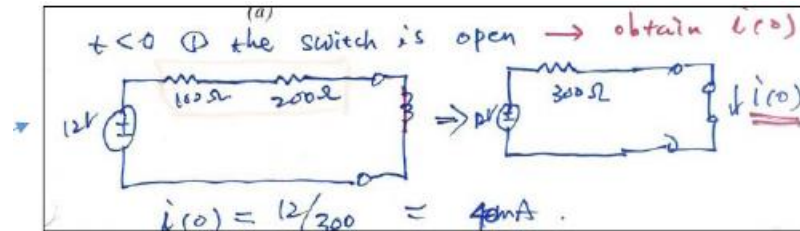 (a)
t<0 ① the switch is open → obtain i(0)
100Ω 200Ω 300Ω
12V ⇒ 12V ↓ i(0)
i(0) = 12/300 = 40mA.